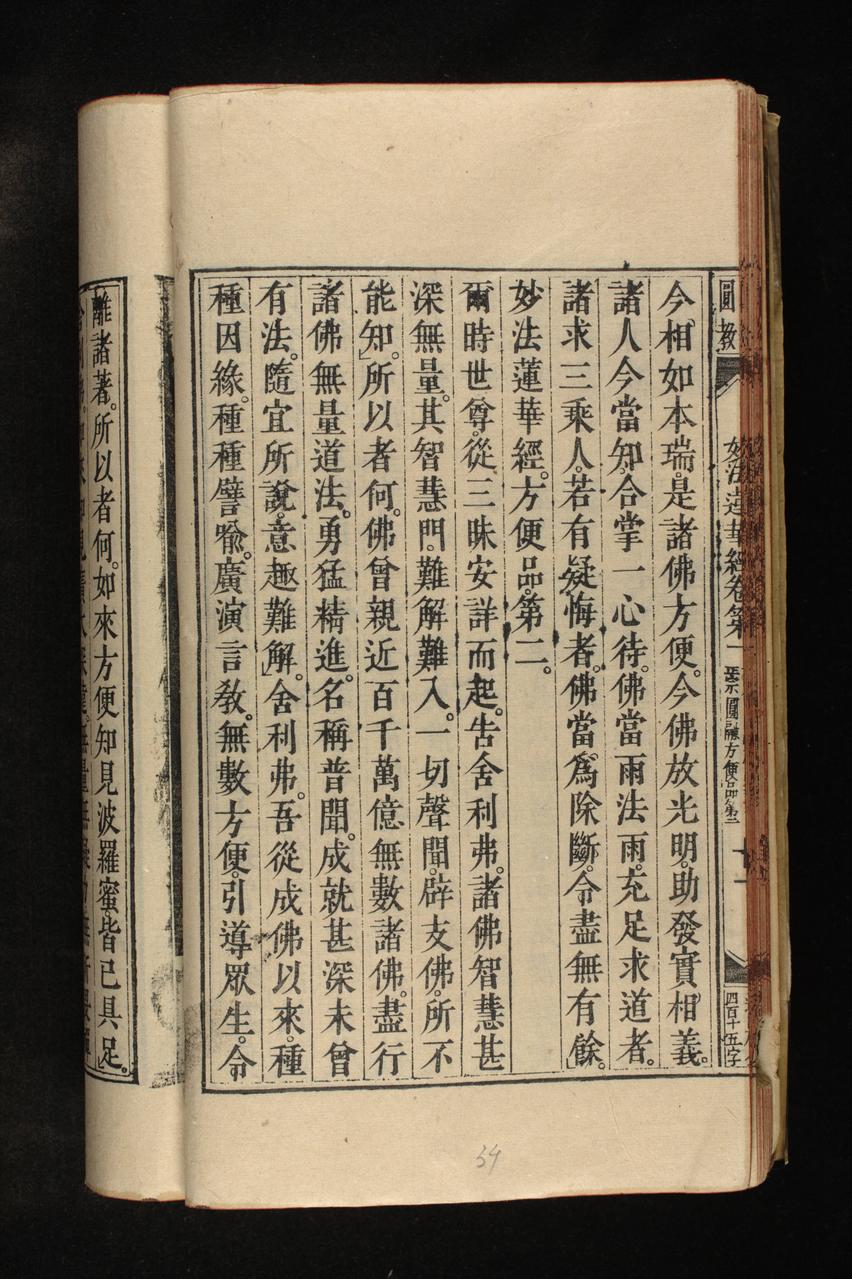 圓教
妙法蓮華經卷第一
四百十五字
今相如本瑞。是諸佛方便。今佛放光明。助發實相義。
諸人今當知。合掌一心待。佛當雨法雨。充足求道者。
諸求三乘人。若有疑悔者。佛當為除斷。令盡無有餘。
妙法蓮華經。方便品。第二。
爾時世尊。從三昧安詳而起。告舍利弗。諸佛智慧甚
深無量。其智慧門。難解難入。一切聲聞。辟支佛。所不
能知。所以者何。佛曾親近百千萬億無數諸佛。盡行
諸佛無量道法。勇猛精進。名稱普聞。成就甚深未曾
有法。隨宜所說。意趣難解。舍利弗。吾從成佛以來。種
種因緣。種種譬喻。廣演言教。無數方便。引導眾生。令
離諸著。所以者何。如來方便知見波羅蜜。皆已具足。
34